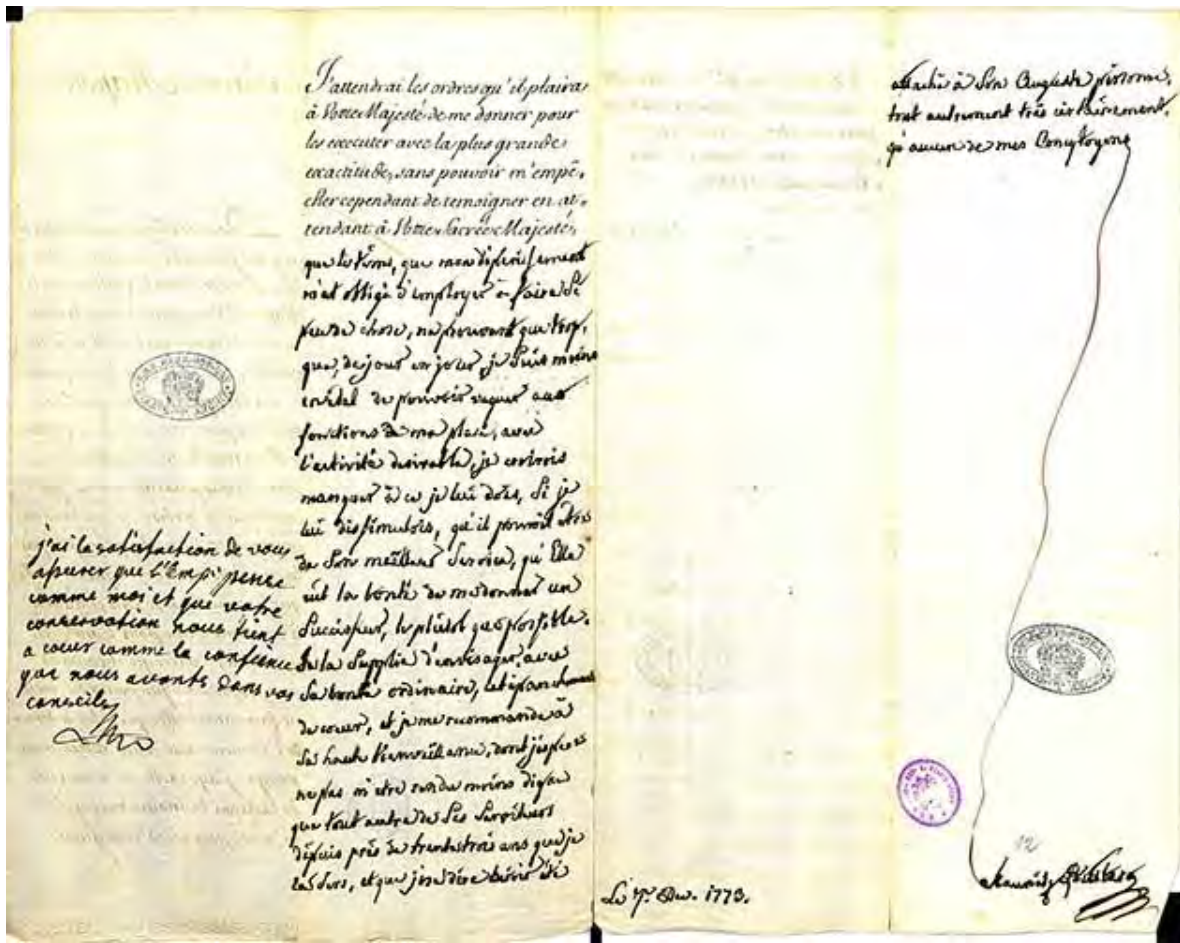 J'attendrai les ordres qu'il plaira
à Votre Majesté de me donner pour
les executer avec la plus grande
exactitude, sans pouvoir m'empê-
cher cependant de temoigner en at-
tendant à Votre Sacrée Majesté,
que le tems, que mon
m'at obligé d'employer à faire Si
peu de chose, ne prouvant que trop,
que, de jour en jour, je Suis moins
en état de pouvoir vaquer aux
fonctions de ma place, avec
l'activité desirable, je croirois
manquer à ce je lui dois, Si je
lui dissimulois, qu'il pourroit être
de Son meilleur Service, qu'Elle
eût la bonté de me donner un
Successeur, le plûtot que possible.
Je la Supplie d'envisager, avec
Sa bonté ordinaire, cet épanchement
de coeur, et je me recommande à
Sa haute Bienveillance, dont j'espere
ne pas m'etre rendu moins digne
que tout autre de Ses Serviteurs
depuis près de trente trois ans que je
la Sers, et que j'ose dire avoir été
j'ai la satisfaction de vous
assurer que l'Emp: pense
comme moi et que votre
conservation nous tient
a coeur comme la confience
que nous avonts dans vos
conseils
Le 7. Dec. 1773.
attaché à Son Auguste personne,
tout autrement très certainement,
qu'aucun de mes Concytoyens
12